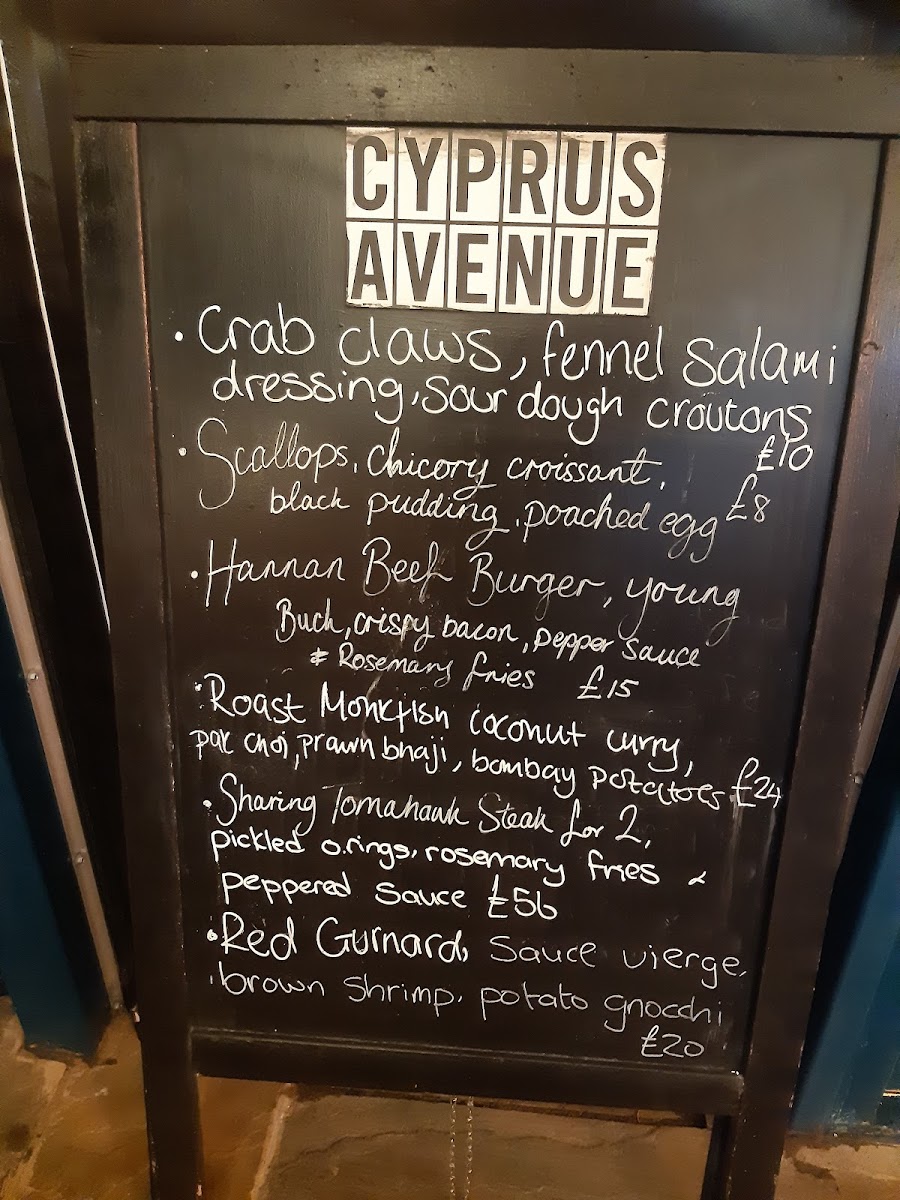 CYPRUS
AVENUE
· Crab claws, fennel salami
dressing, sour dough croutons
£10
· Scallops, chicory croissant,
black pudding, poached egg £8
· Hannan Beef Burger, young
Buck, crispy bacon, pepper sauce
& Rosemary fries £15
· Roast Monkfish coconut curry,
pak choi, prawn bhaji, bombay potatoes, £24
· Sharing Tomahawk Steak for 2,
pickled o.rings, rosemary fries &
peppered sauce £56
· Red Gurnard, sauce vierge,
brown shrimp, potato gnocchi
£20